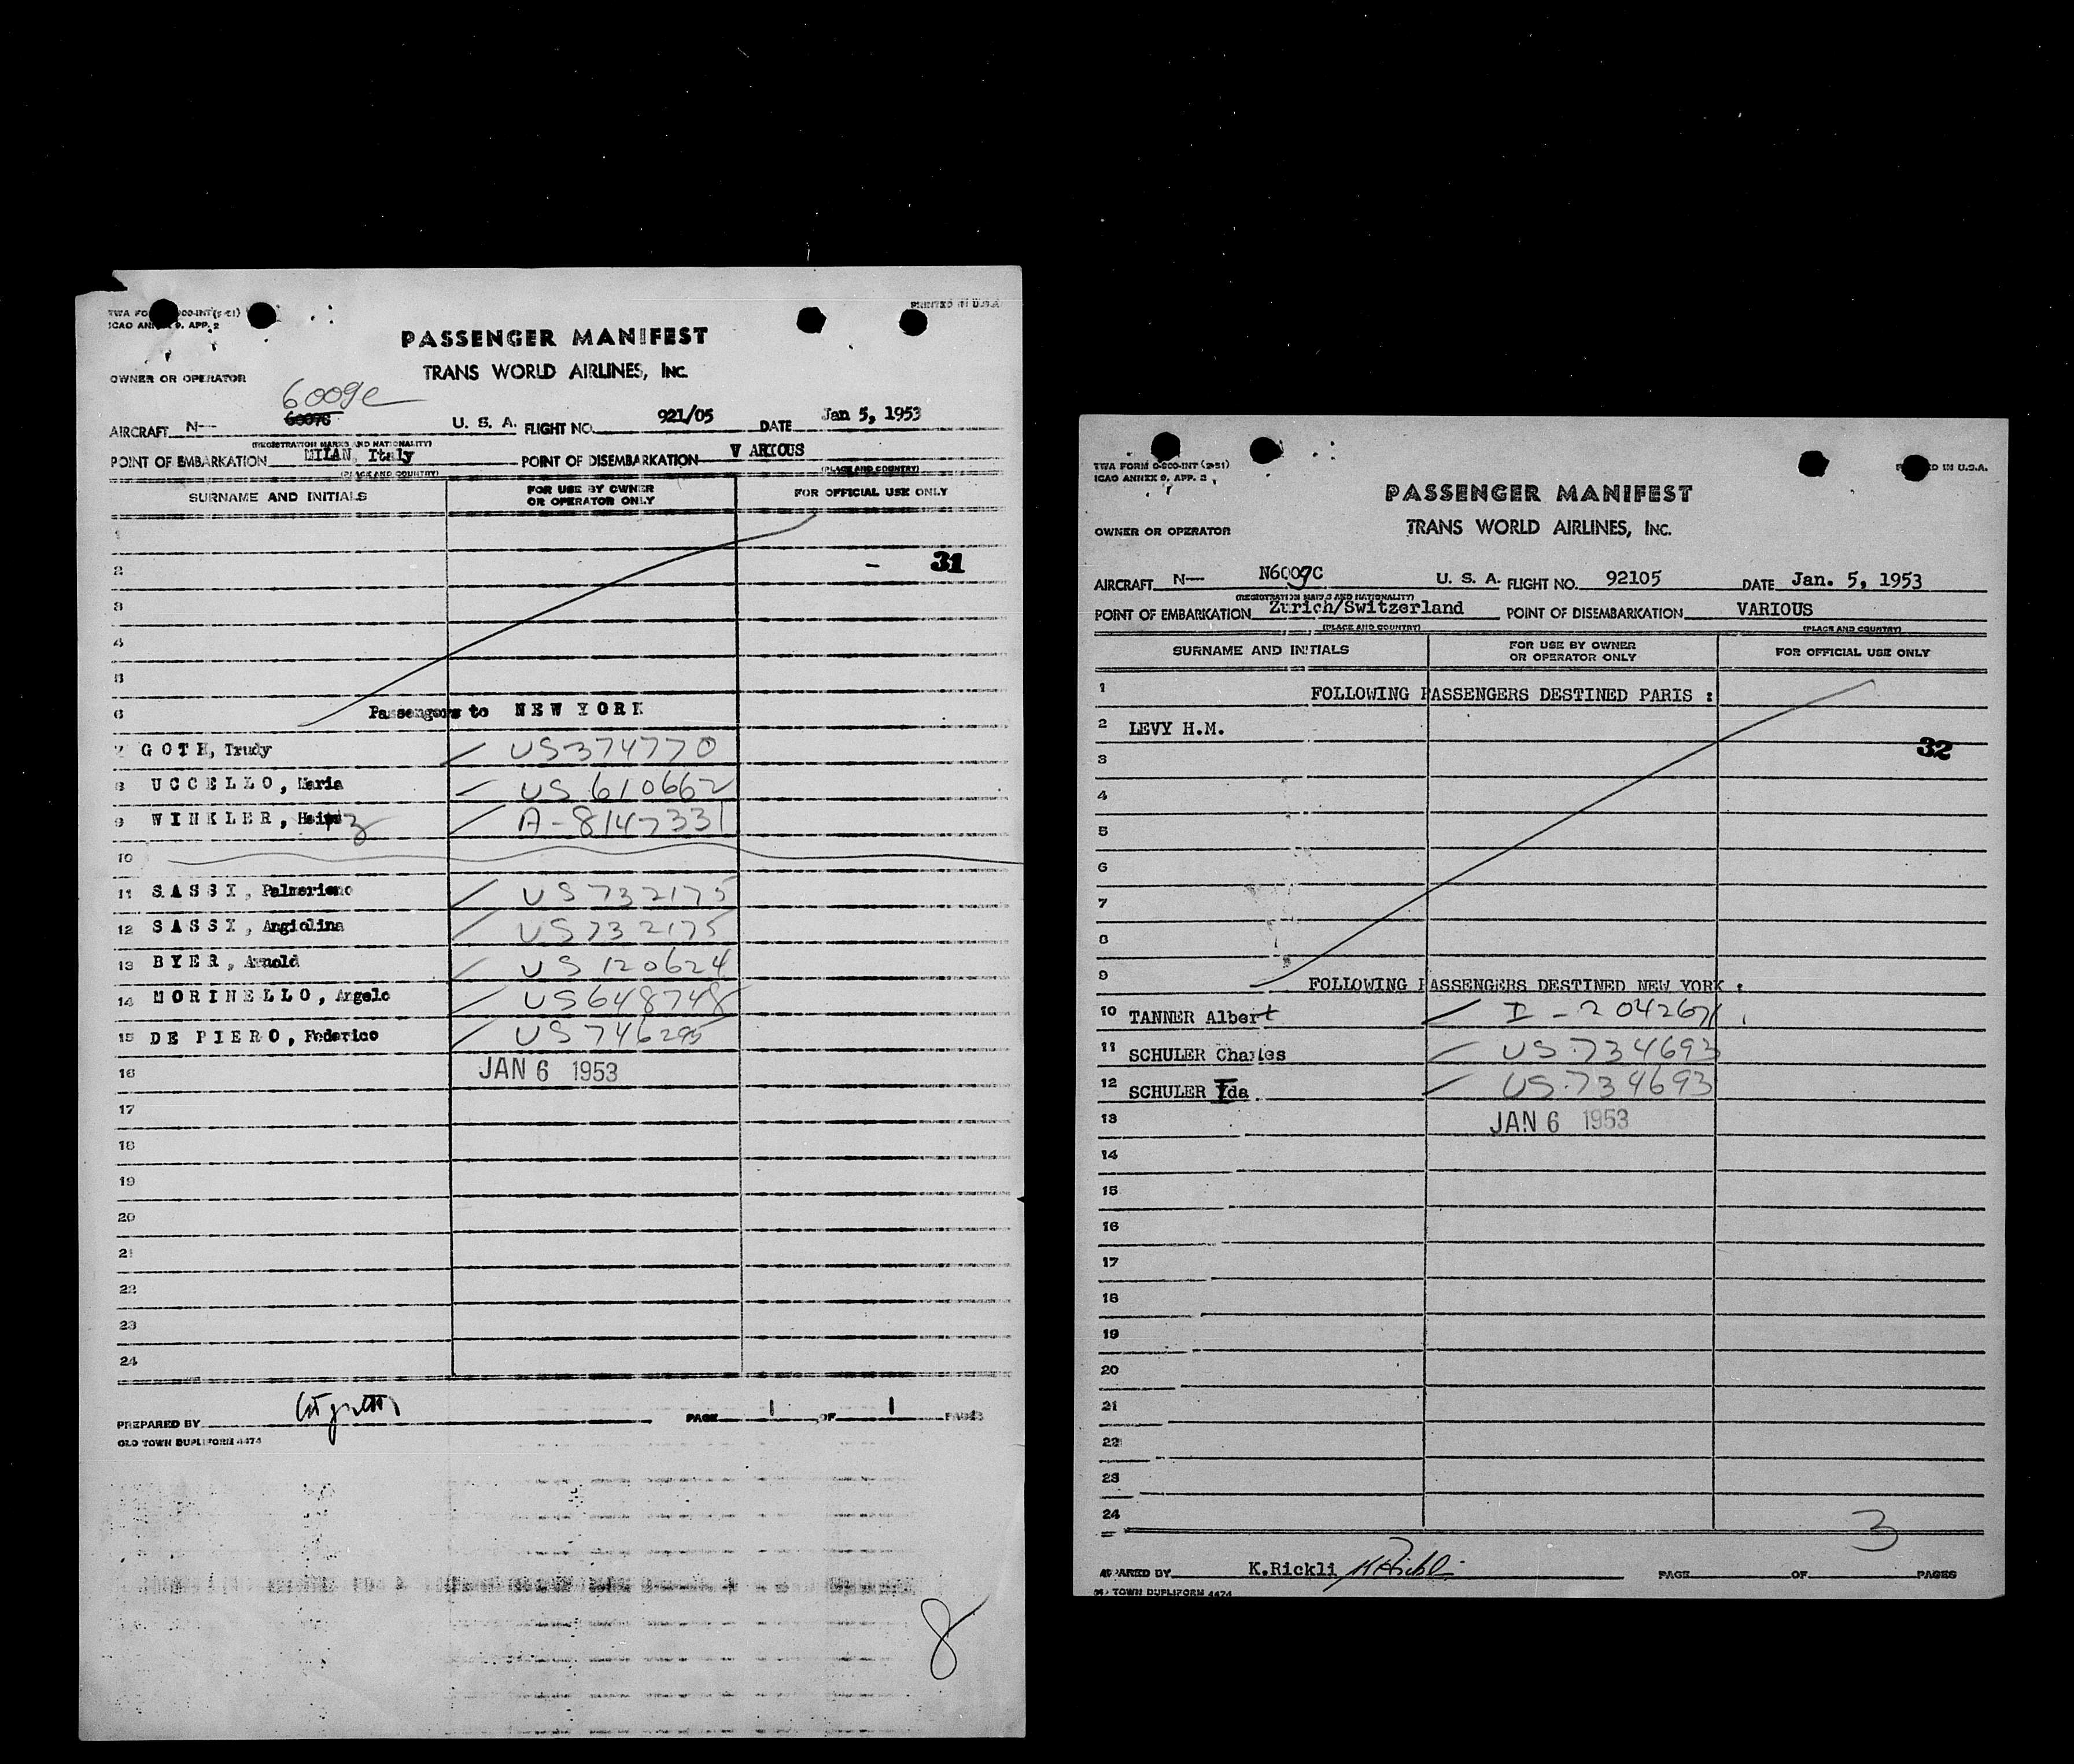 TWA FO 00-INT (2-51)
ICAO ANNEX 9, APP. 2
PRINTED IN U.S.A.
PASSENGER MANIFEST
TRANS WORLD AIRLINES, INC.
OWNER OR OPERATOR
6009c
AIRCRAFT N-- 6007C U. S. A. FLIGHT NO. 921/05 DATE Jan 5, 1953
(REGISTRATION MARKS AND NATIONALITY)
POINT OF EMBARKATION MILAN, Italy POINT OF DISEMBARKATION V ARIOUS
(PLACE AND COUNTRY) (PLACE AND COUNTRY)
SURNAME AND INITIALS FOR USE BY OWNER OR OPERATOR ONLY FOR OFFICIAL USE ONLY
1
2 - 31
3
4
5
6 Passengers to NEW YORK
7 GOTH, Trudy US 374770
8 UCCELLO, Maria US 610662
9 WINKLER, Heinz A-8147331
10
11 SASSI, Palmerieno US 732175
12 SASSI, Angiolina US 732175
13 BYER, Arnold US 120624
14 MORINELLO, Angelo US 648748
15 DE PIERO, Federico US 746295
16 JAN 6 1953
17
18
19
20
21
22
23
24
PREPARED BY PAGE 1 OF 1 PAGES
OLD TOWN DUPLIFORM 4474
8
TWA FORM 0-800-INT (2-51)
ICAO ANNEX 9, APP. 2
D IN U.S.A.
PASSENGER MANIFEST
TRANS WORLD AIRLINES, INC.
OWNER OR OPERATOR
AIRCRAFT N-- N6009C U. S. A. FLIGHT NO. 92105 DATE Jan. 5, 1953
(REGISTRATION MARKS AND NATIONALITY)
POINT OF EMBARKATION Zurich/Switzerland POINT OF DISEMBARKATION VARIOUS
(PLACE AND COUNTRY) (PLACE AND COUNTRY)
SURNAME AND INITIALS FOR USE BY OWNER OR OPERATOR ONLY FOR OFFICIAL USE ONLY
1 FOLLOWING PASSENGERS DESTINED PARIS :
2 LEVY H.M.
3 32
4
5
6
7
8
9 FOLLOWING PASSENGERS DESTINED NEW YORK :
10 TANNER Albert I-2042671
11 SCHULER Charles US.734693
12 SCHULER Ida US.734693
13 JAN 6 1953
14
15
16
17
18
19
20
21
22
23
24
3
PARED BY K.Rickli K Rickli PAGE OF PAGES
TOWN DUPLIFORM 4474